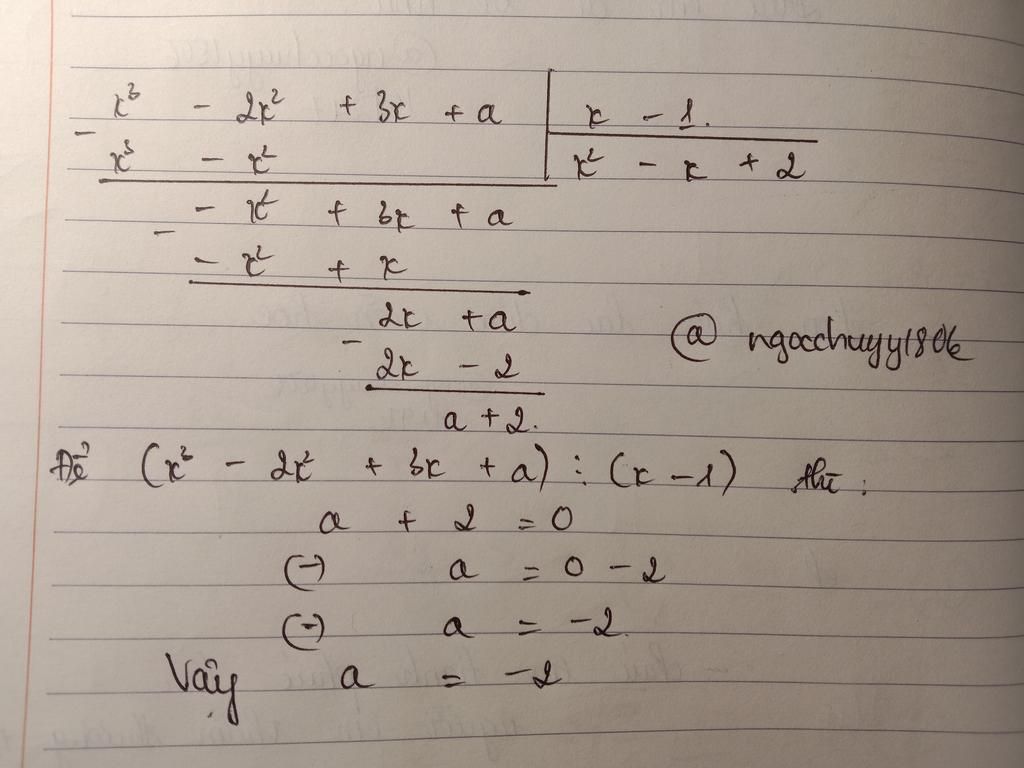 x³ - 2x² + 3x + a | x - 1.
- x³ - x² | x² - x + 2
- x² + 3x + a
- - x² + x
2x + a
- 2x - 2
@ngocchuyy1806
a + 2.
Để (x² - 2x² + 3x + a) ⋮ (x - 1) thì :
a + 2 = 0
(-) a = 0 - 2
(-) a = -2.
Vậy a = -2